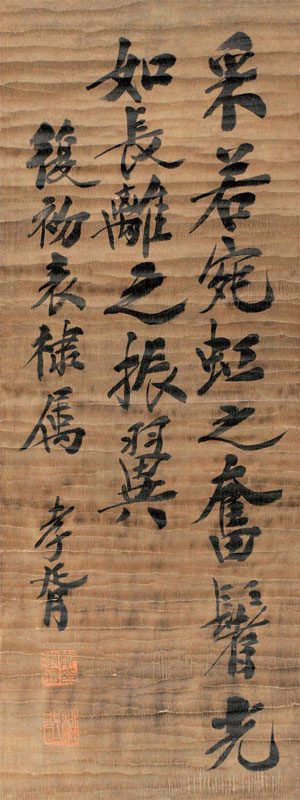 采若宛虹之奮鬐光
如長離之振翼
復初表棣属
孝胥